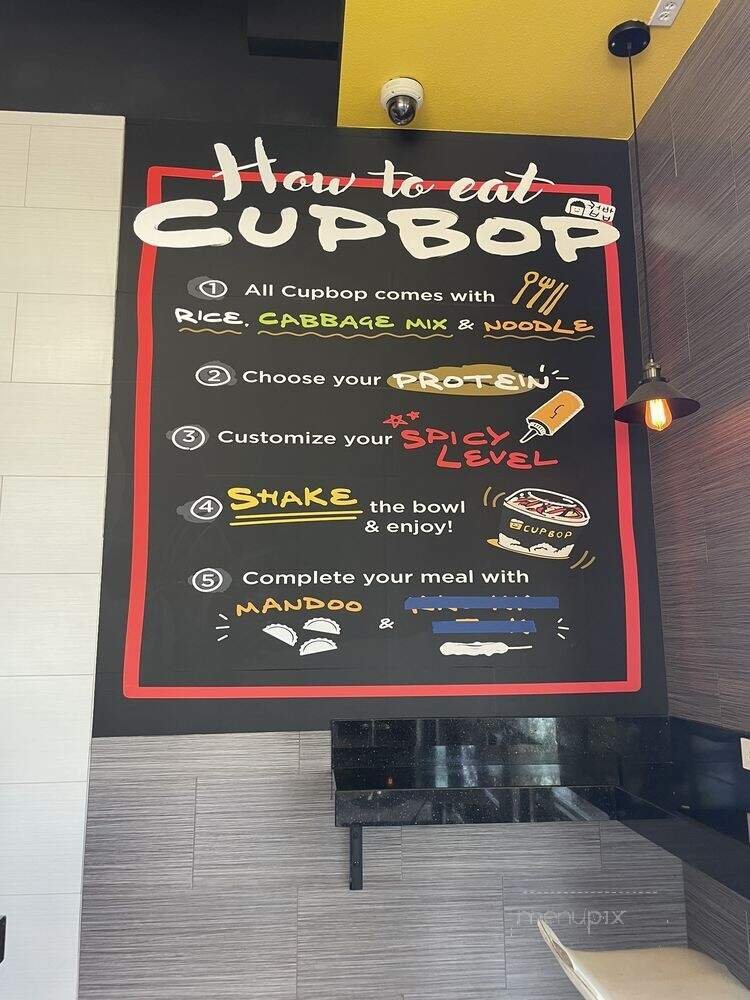 How to eat
CUPBOP
컵밥
1 All Cupbop comes with
RICE, CABBAGE MIX & NOODLE
2 Choose your PROTEIN
3 Customize your SPICY
LEVEL
4 SHAKE the bowl
& enjoy!
CUPBOP
5 Complete your meal with
MANDOO
&
menupix